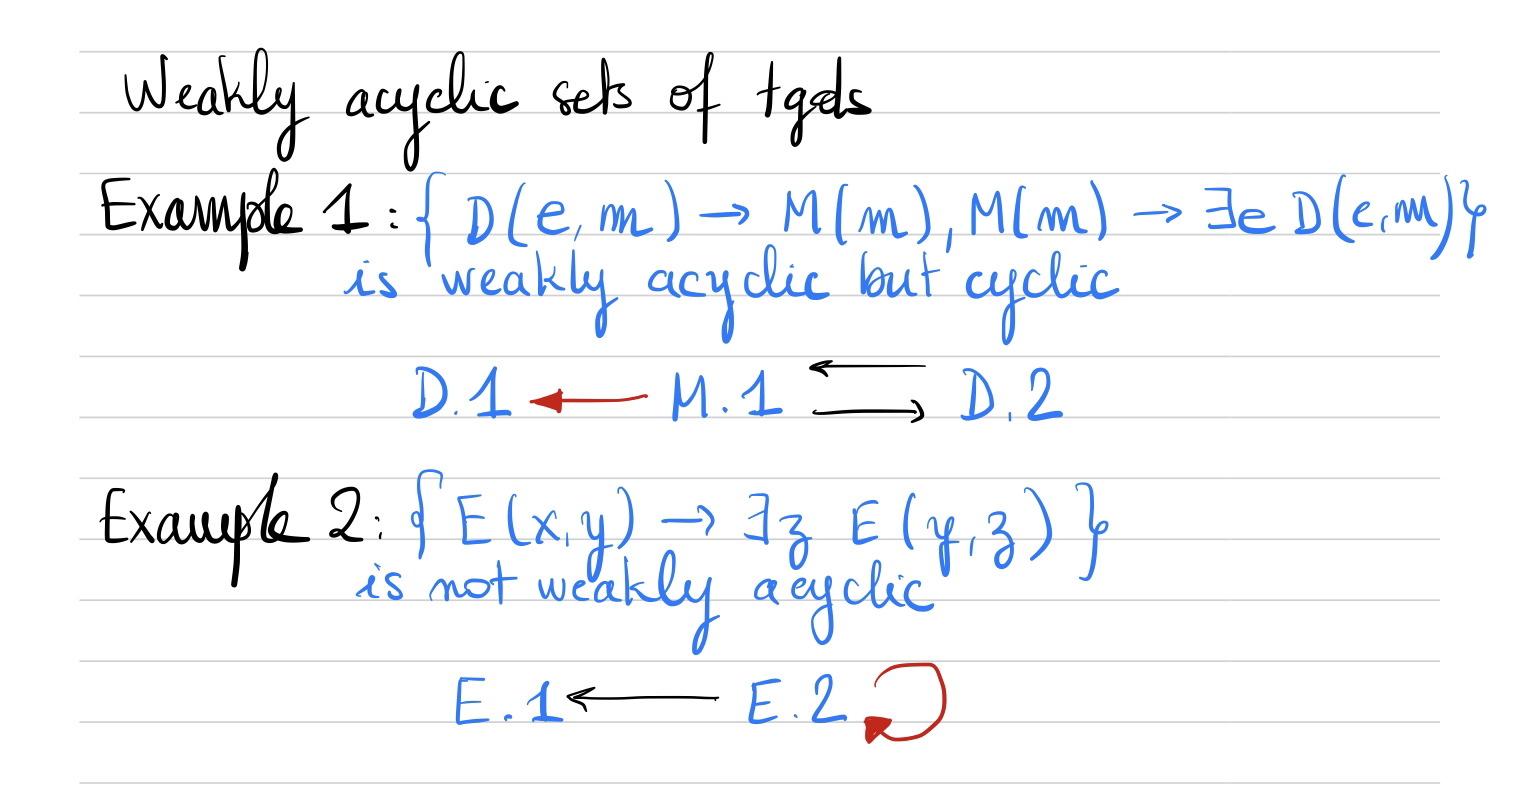 Weakly acyclic sets of tgds
Example 1: { D(e,m) → M(m), M(m) → ∃e D(e,m)}
is weakly acyclic but cyclic
D.1 ← M.1 ← → D.2
Example 2: { E(x,y) → ∃z E(y,z) }
is not weakly acyclic
E.1 ← E.2